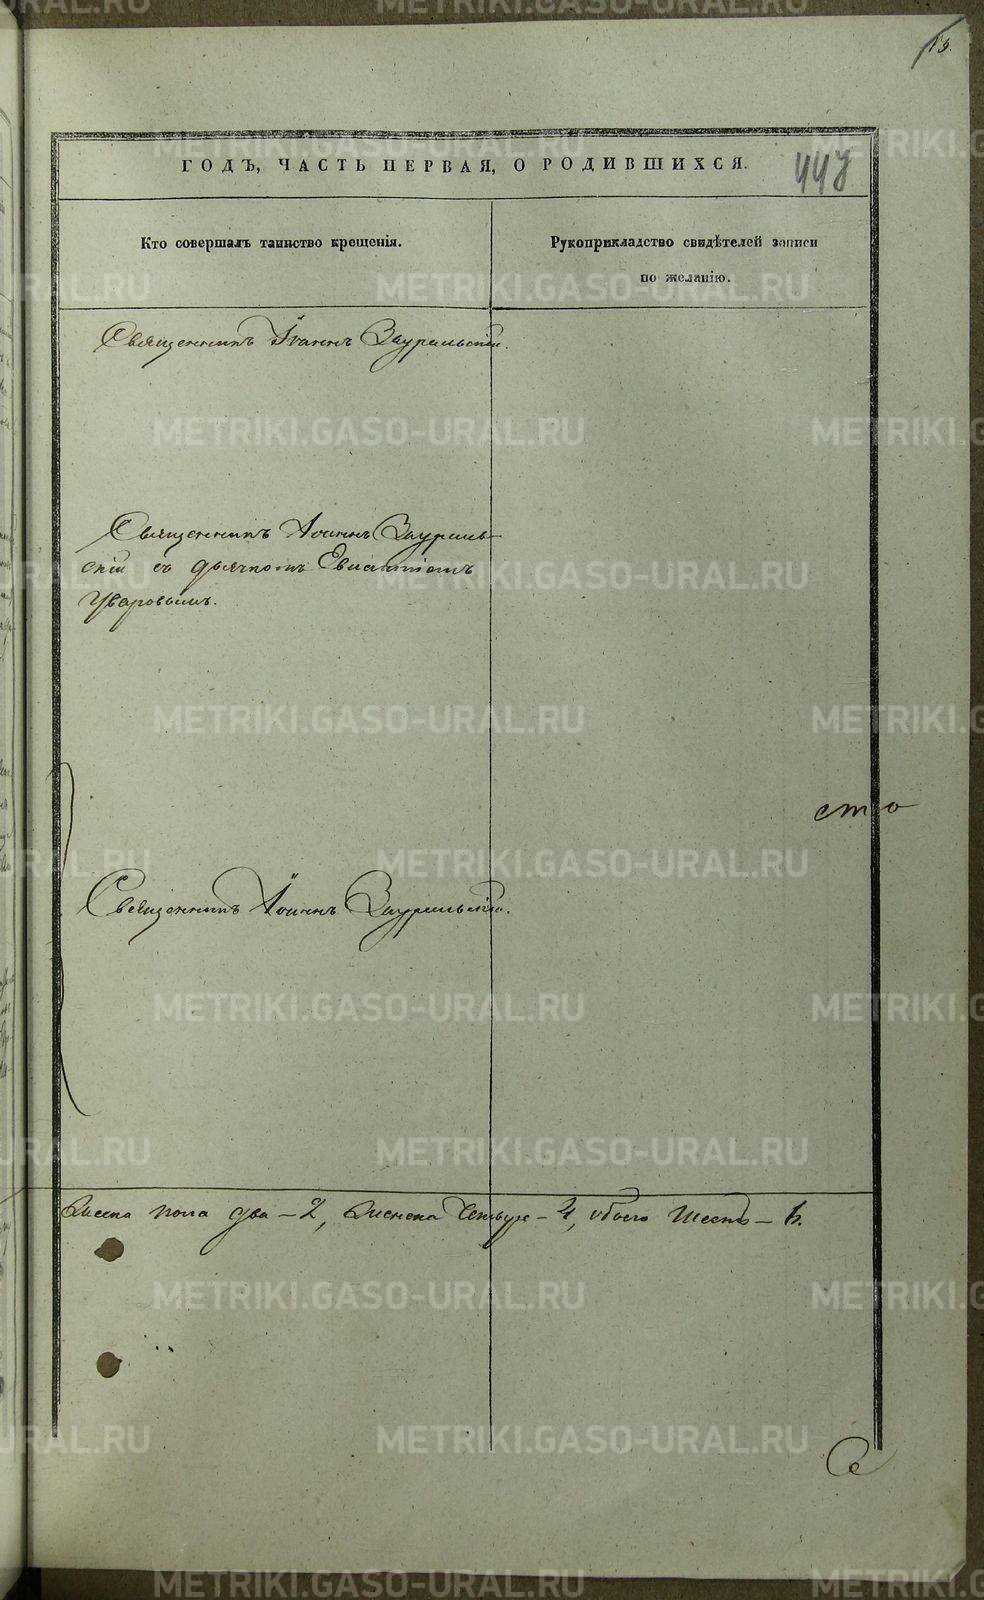 13.
ГОДЪ, ЧАСТЬ ПЕРВАЯ, О РОДИВШИХСЯ.
Кто совершалъ таинство крещенія.
Рукоприкладство свидѣтелей записи
по желанію.
Священникъ Іоаннъ Зауральскій.
Священникъ Іоаннъ Зураль-
скій съ дьячкомъ
Уваровымъ.
сто
Священникъ Іоаннъ Зауральскій.
пола два – 2, женска четыре – 4, обоего шесть – 6.
Се
METRIKI.GASO-URAL.RU